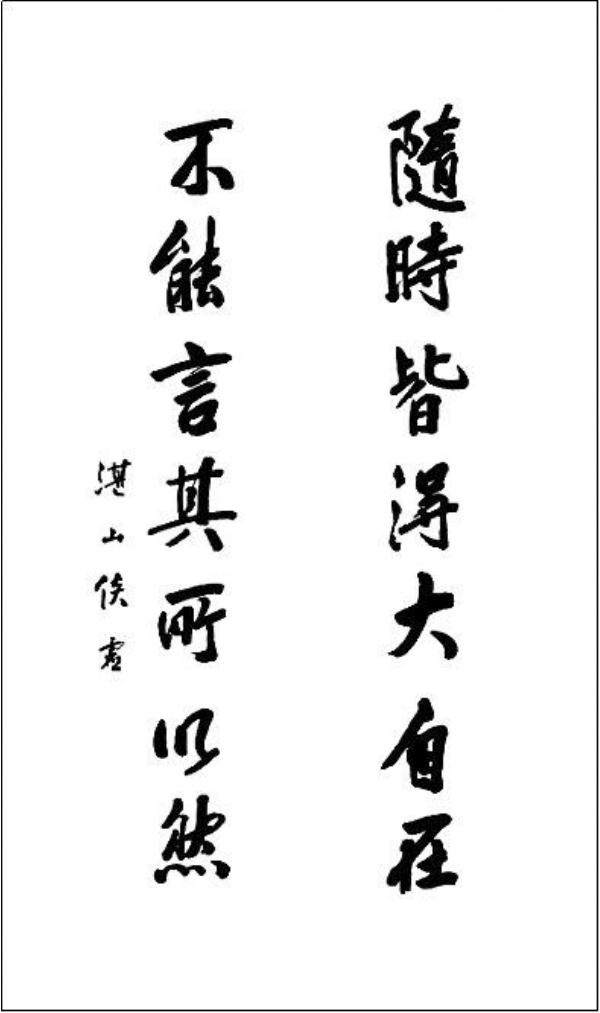 隨時皆得大自在
不能言其所以然
湛山倓虛